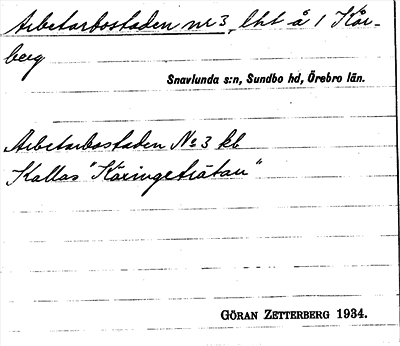 Arbetarbostaden nr 3, lht å 1 Kår-
berg
Snavlunda s:n, Sundbo hd, Örebro län.
Arbetarbostaden No 3 kb
Kallas "Käringeträtan"
GÖRAN ZETTERBERG 1934.